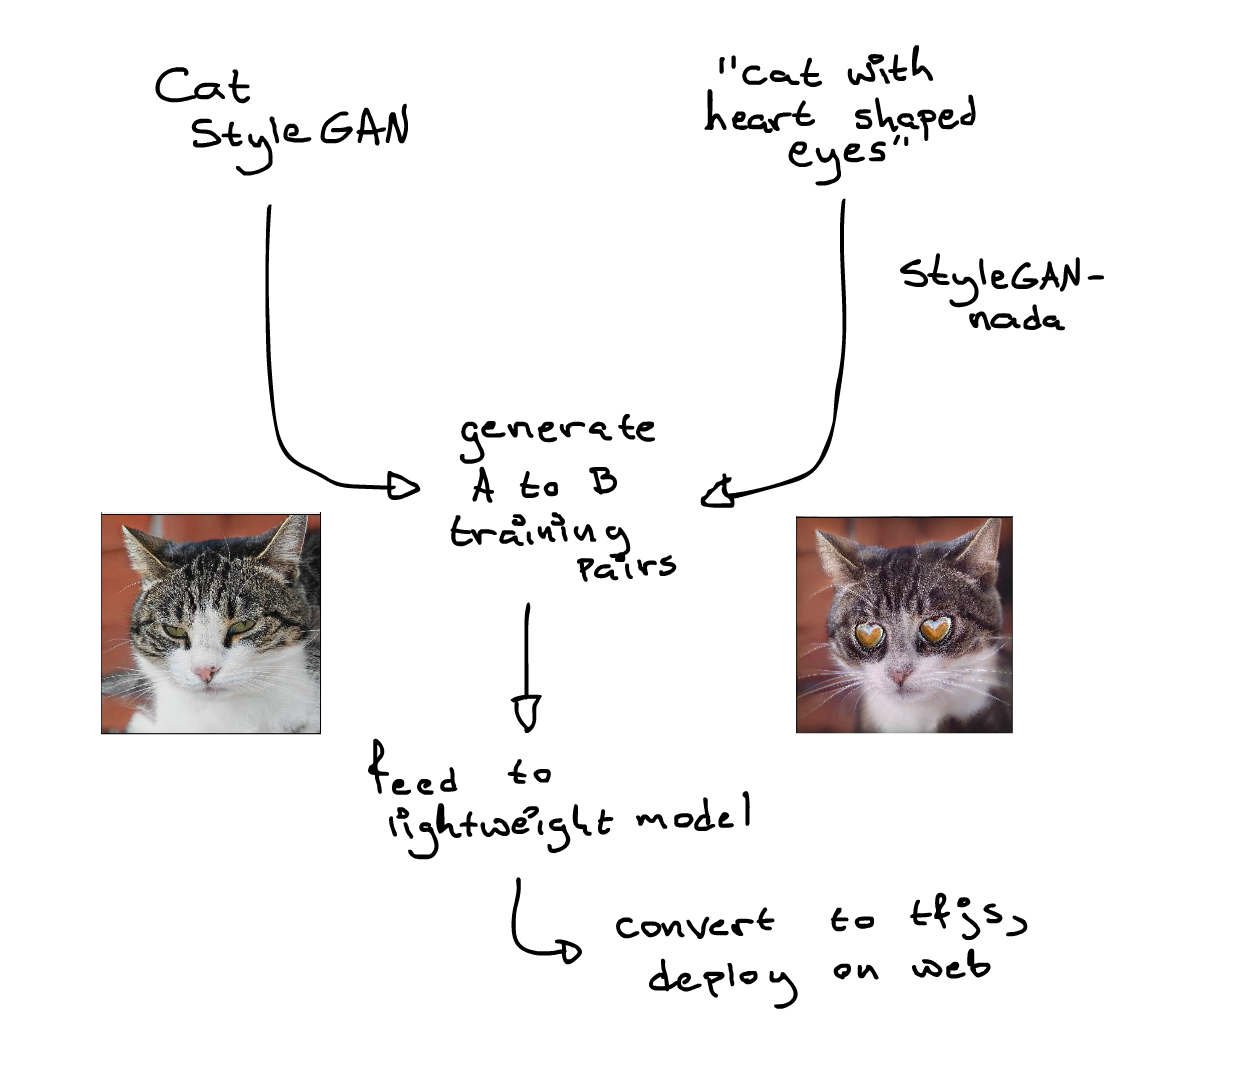 Cat
StyleGAN
"cat with
heart shaped
eyes"
StyleGAN-
nada
generate
A to B
training
pairs
feed to
lightweight model
convert to tfjs,
deploy on web